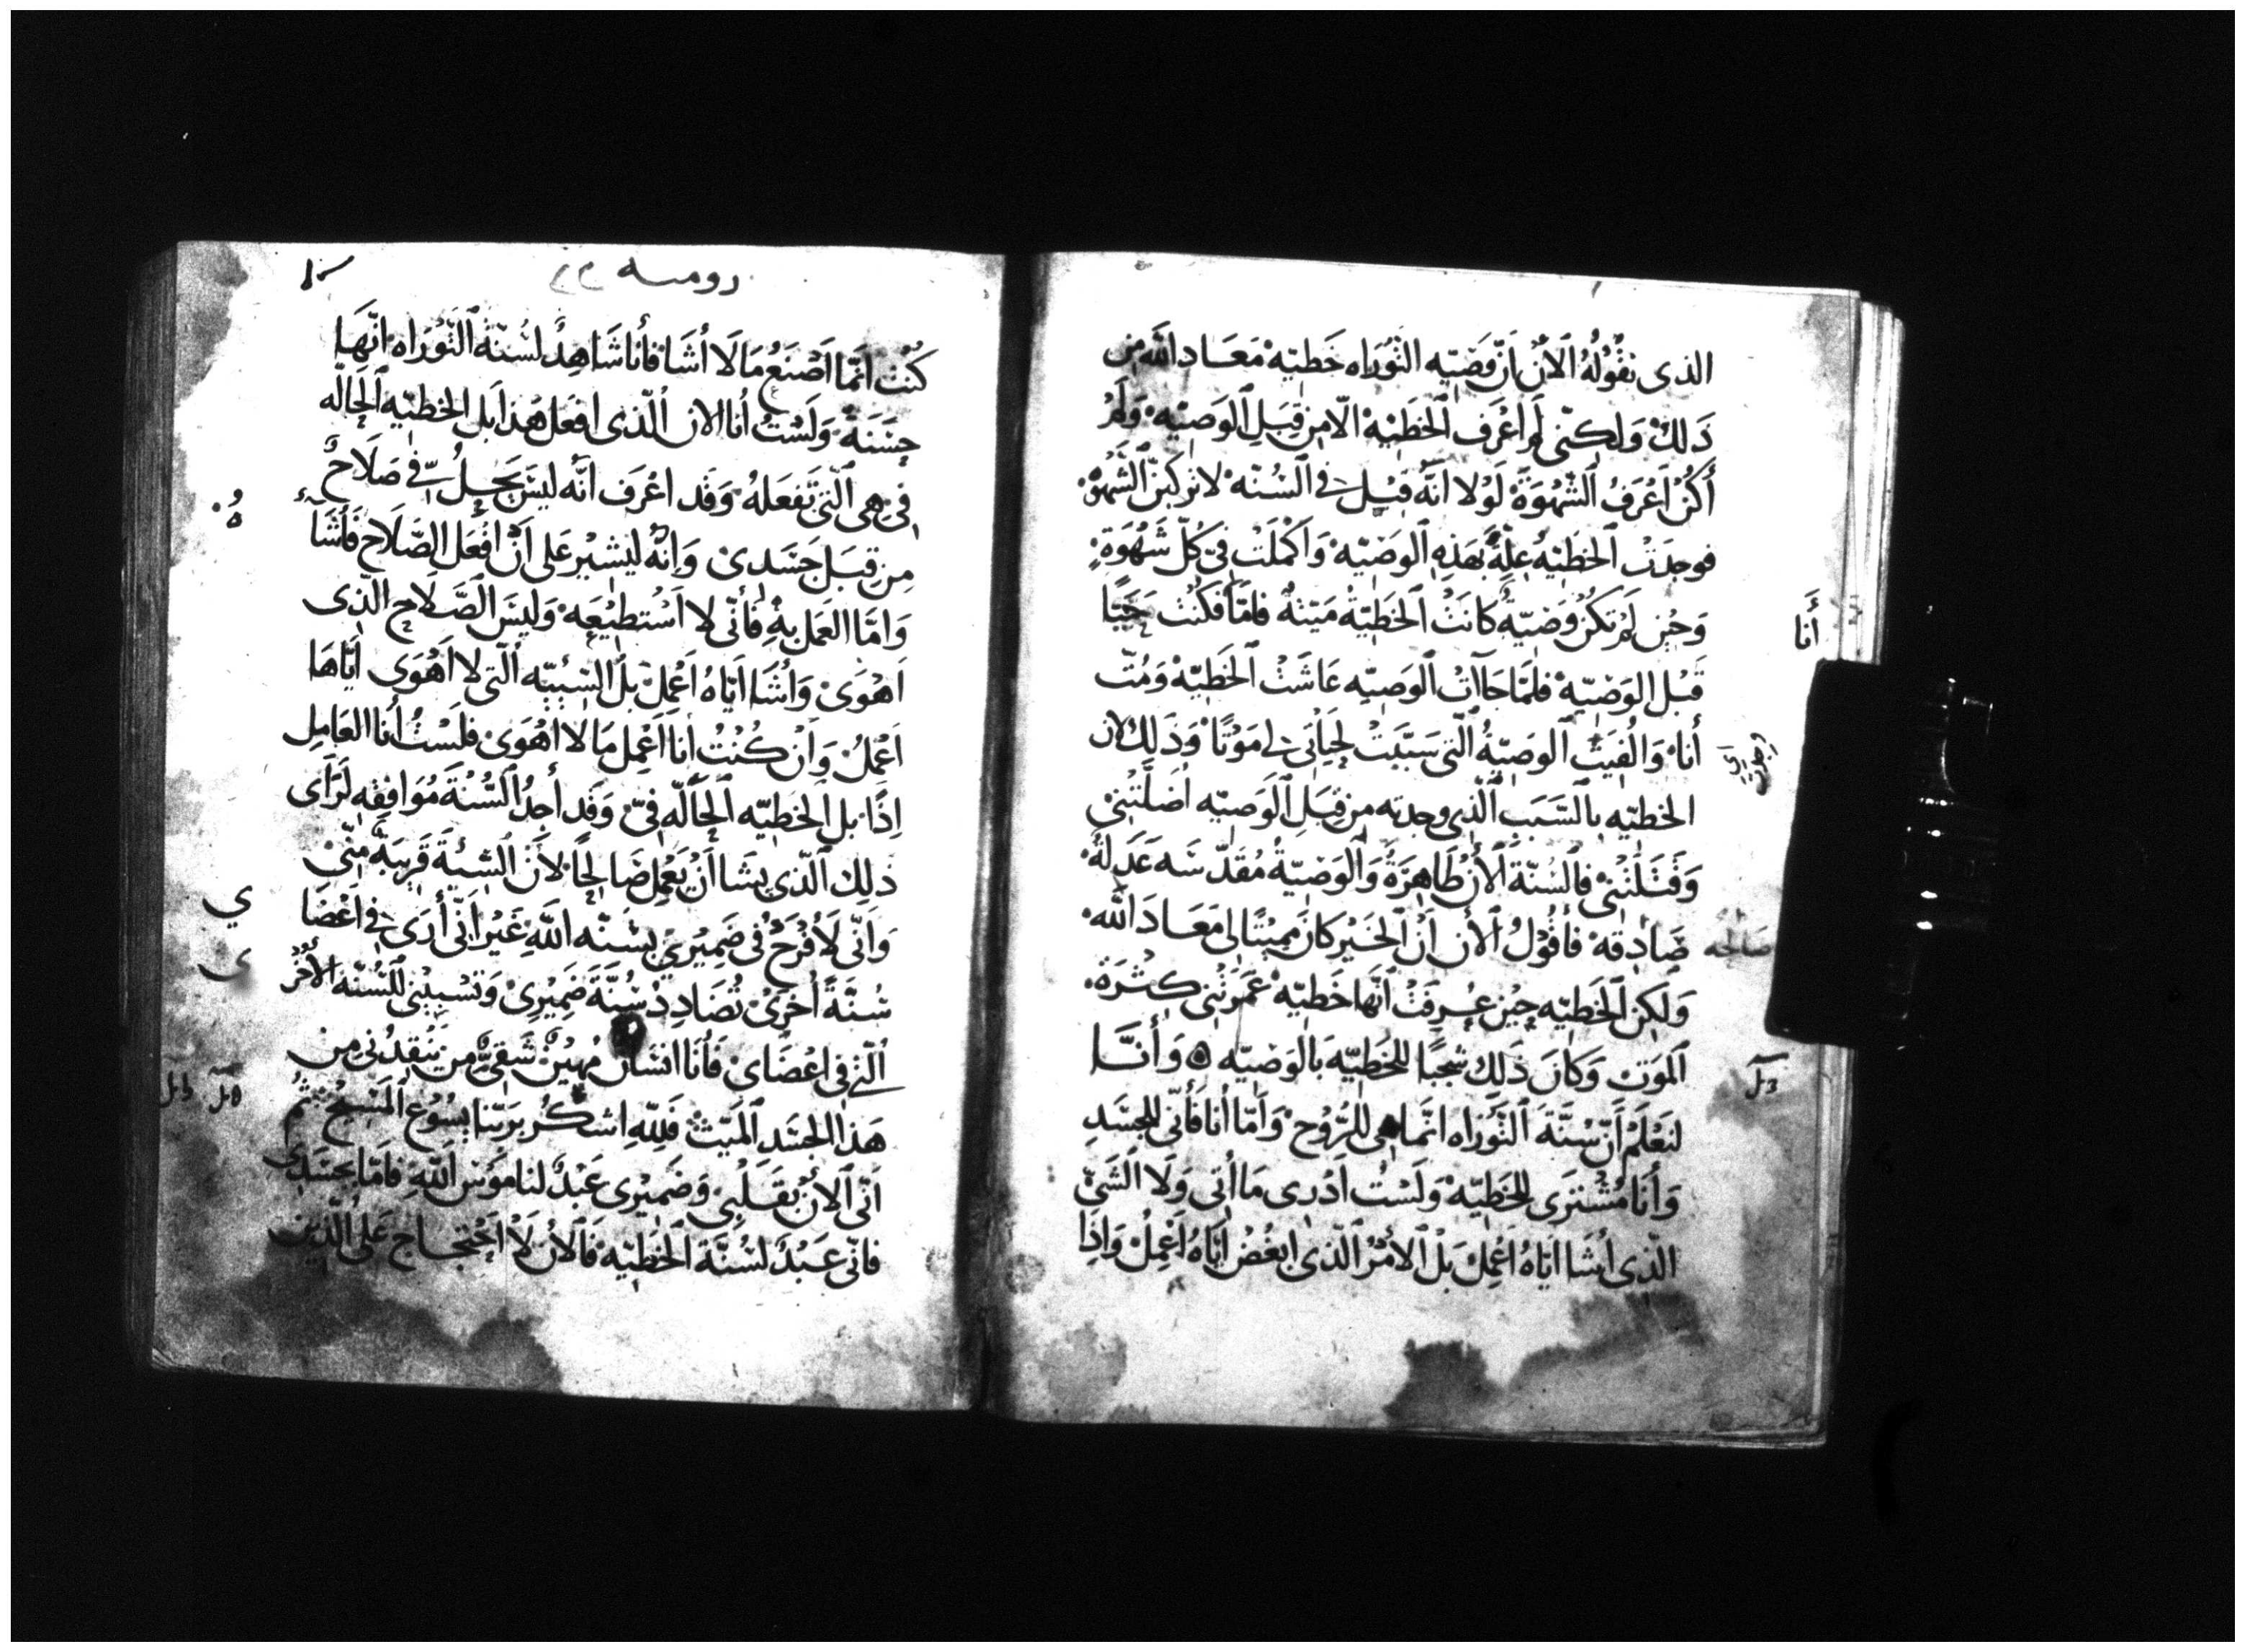 الذى نقُولُهُ ٱلاَنْ انَّ وَصَيّه التَّوْرَاه خَطيّه مَعَاد اللّه مِن
ذَلكْ وَلكِنّى لَم اعْرَف الخَطَيّه الّا مِن قِبَلِ ٱلوَصَيّه وَلَم
أكُنْ اَعْرَفُ ٱلشّهْوَةَ لَوْلا انّهُ قيْل فى ٱلسُنّه لا تركبنّ ٱلشَهْوَه
فوجدَتْ ٱلخطَيّهُ عِلّةً بهَذِهِ ٱلوَصَيّه وَاكْمَلَتْ فىّ كُلّ شَهْوَةٍ
وَحِيْن لَمْ تَكُنْ وَصَيّةٌ كانَتْ ٱلخَطَيّةُ مَيّتةٌ فامّا فكُنْت حَيًّا
أَنا
قَبْل الوَصَيّة فلمّا جَآات ٱلوَصِيّه عَاشَتْ ٱلخَطِيّه وَمُتّ
أنا وَالُفِيَت ٱلوصِيّةُ ٱلّتى سَبّبَتْ لِحَيَاتى لى مَوْتًا وَذَلِك لان
الخطيّه بالسَّبَب ٱلّذى وجدته من قبَلِ ٱلوَصيّه اضَلّتْنِى
وَقَتَلَتْنِى فالسُنّة ٱلاَن طَاهِرَةٌ وَٱلوَصَيّةُ مُقدّسَه عَدَلهٌ
صَادِقه فأقُوْلُ ٱلأن اَنّ ٱلخَيْر كانَ مُمِيْتًا لى مَعَادَ اللّه
صَالحه
وَلَكِن ٱلخَطيّه حِيْن عُرِفَتْ اَنّها خَطيّه غمَرَتْنى كثْرَة
ٱلمَوَت وَكانَ ذَلِك شجبًا للخَطيّه بَالوَصيّه ٥ وَأنَّا
لنَعْلَمْ أنّ سُنَّةَ ٱلتَّوْرَاه انّما هى للرُّوْح وَامّا أنا فأنّى للجسَدِ
وَأنا مُشْترَى للخَطيّه وَلَسْتُ اَدْرى مَا اُتى وَلَا الشَىْ
الّذِى اشَا اَيّاهُ اَعْمِلْ بَلْ ٱلأمْرُ الّذى ابغُضُ ايّاهُ اَعْمِلُ وَاذِا
رومىه ٢٢
كُنْت اَنّما اَصْنَعُ مَا لَا اُشَا فأنا شَاهِدٌ لسُنّة ٱلتَّوْرَاه انّهَا
حَسَنَةٌ وَلَسْتُ أنا الان الّذى افعَل هَذا بَل الخطيّه ٱلحالّه
فىّ هى ٱلّتى تَفعَلهُ وَقد اعْرَف انّه ليسَ يَحِلُّ فىّ صَلَاحٌ
مِن قبَل جَسَدىْ وَانّهُ ليشيْر عَلى اَنْ افْعَل الصَّلَاح فَأَشَآ
ءهُ
وَامّا العَمَل بهِ فَأنّى لا اَسْتطيْعه وَليسَ الصَّلَاح الّذِى
اَهْوَىْ وَاُشَا ايّاهُ اَعْمِلْ بَل السّيئه ٱلّتى لا اَهْوَى ايّاهَا
اَعْمِلُ وَاِنْ كُنْتُ أنا اَعْمِل مَا لا اَهْوَىْ فلَسْتُ أنا العَامِل
اِذًا بل الخطيّه ٱلحَالّه فىّ وَقد أجدُ ٱلسُّنّةَ مُوَافِقه لَرَاى
ذلِك ٱلّذى يشَا اَنْ يَعْمِل صَالحًا لأَنّ ٱلسّيئَةَ قَرِيبَةٌ مِنّى
وَانّى لَاُفْرَحُ فى ضَمِيْرِىْ بسُنّه اللّهِ غَيْر انّى أرَى فى اَعْضَا
ي
سُنّةً اُخرَىْ تُضَادِدْ سُنَّةَ ضَمِيْرِىْ وَتسْبِيْنى للسُنّه الأُخْرَ
ى
ٱلّتى فى اعْضَاىْ فَأنا انسَانٌ مُهِيْنٌ شَقِىٌّ مِن يَنْقِدُنى مِن
هَذا الجسَدِ ٱلمَيّت فَلِلّهِ اشكُر برَبّنا يسُوْعَ ٱلمَسِيْح ثمّ
اَنّى ٱلاَنْ بقَلْبِى وَضَمِيْرى عَبْدٌ لنامُوَس اَللّهِ فامّا بجسَدِى
فانّى عَبْدٌ لسُنّة ٱلخَطيّه فَٱلأن لَا اَحْتِجَاج عَلى ٱلّذِيْن